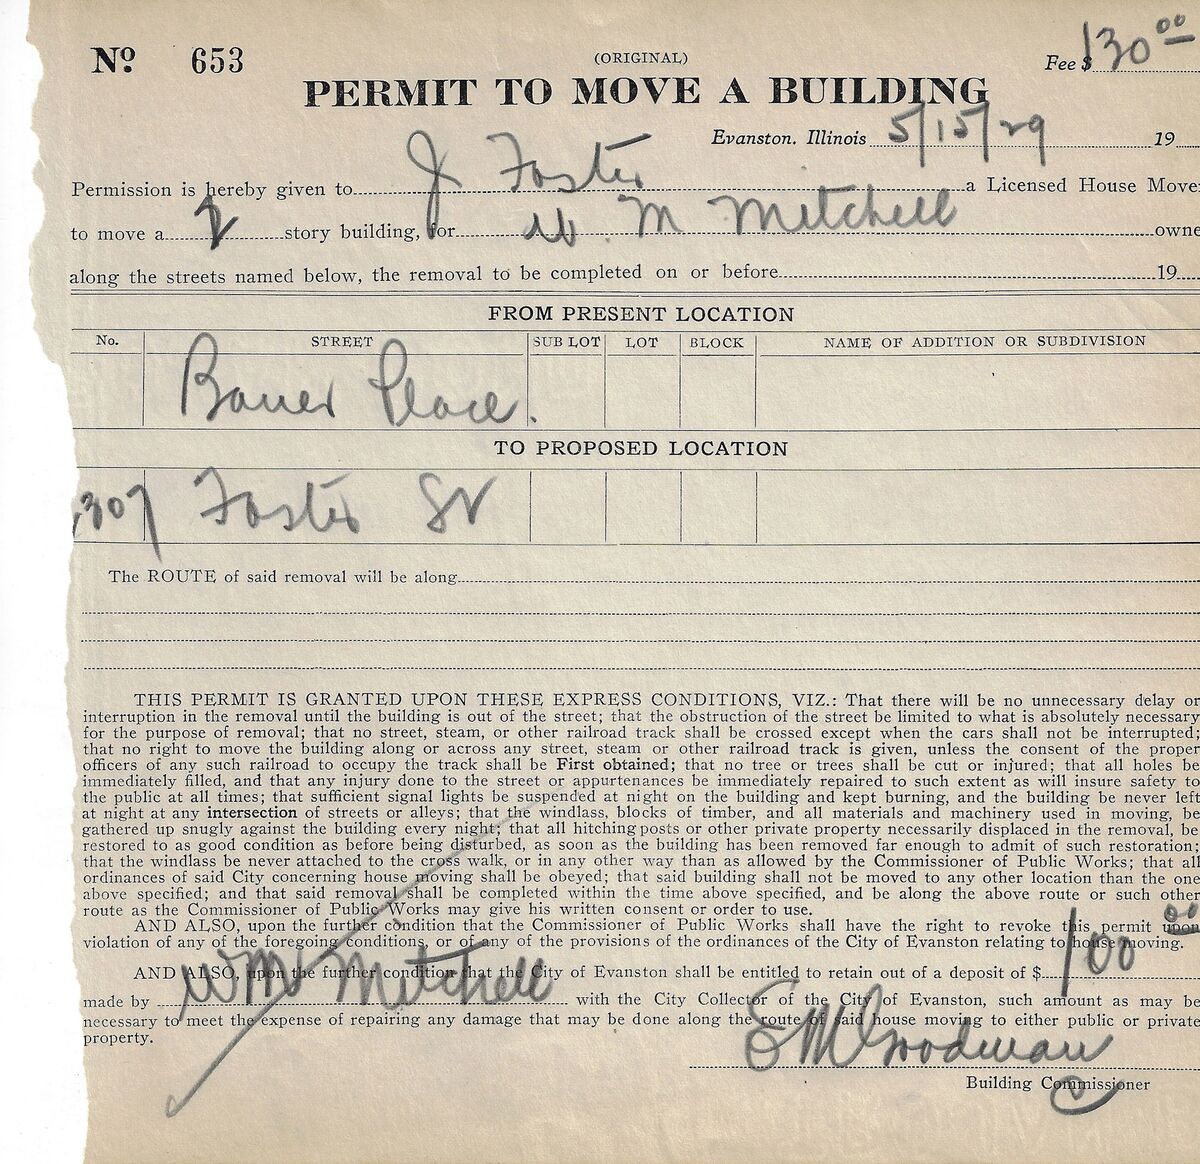 No 653 (ORIGINAL) Fee $ 130 00
PERMIT TO MOVE A BUILDING
Evanston, Illinois 5/15/29 19
Permission is hereby given to J Foster a Licensed House Move
to move a 2 story building, for W. M Mitchell owne
along the streets named below, the removal to be completed on or before 19
FROM PRESENT LOCATION
No. STREET SUB LOT LOT BLOCK NAME OF ADDITION OR SUBDIVISION
Bauer Place.
TO PROPOSED LOCATION
307 Foster St
The ROUTE of said removal will be along
THIS PERMIT IS GRANTED UPON THESE EXPRESS CONDITIONS, VIZ.: That there will be no unnecessary delay or
interruption in the removal until the building is out of the street; that the obstruction of the street be limited to what is absolutely necessary
for the purpose of removal; that no street, steam, or other railroad track shall be crossed except when the cars shall not be interrupted;
that no right to move the building along or across any street, steam or other railroad track is given, unless the consent of the proper
officers of any such railroad to occupy the track shall be First obtained; that no tree or trees shall be cut or injured; that all holes be
immediately filled, and that any injury done to the street or appurtenances be immediately repaired to such extent as will insure safety to
the public at all times; that sufficient signal lights be suspended at night on the building and kept burning, and the building be never left
at night at any intersection of streets or alleys; that the windlass, blocks of timber, and all materials and machinery used in moving, be
gathered up snugly against the building every night; that all hitching posts or other private property necessarily displaced in the removal, be
restored to as good condition as before being disturbed, as soon as the building has been removed far enough to admit of such restoration;
that the windlass be never attached to the cross walk, or in any other way than as allowed by the Commissioner of Public Works; that all
ordinances of said City concerning house moving shall be obeyed; that said building shall not be moved to any other location than the one
above specified; and that said removal shall be completed within the time above specified, and be along the above route or such other
route as the Commissioner of Public Works may give his written consent or order to use.
AND ALSO, upon the further condition that the Commissioner of Public Works shall have the right to revoke this permit upon
violation of any of the foregoing conditions, or of any of the provisions of the ordinances of the City of Evanston relating to house moving.
AND ALSO, upon the further condition that the City of Evanston shall be entitled to retain out of a deposit of $ 100 00
made by Wm Mitchell with the City Collector of the City of Evanston, such amount as may be
necessary to meet the expense of repairing any damage that may be done along the route of said house moving to either public or private
property.
E M Goodman
Building Commissioner